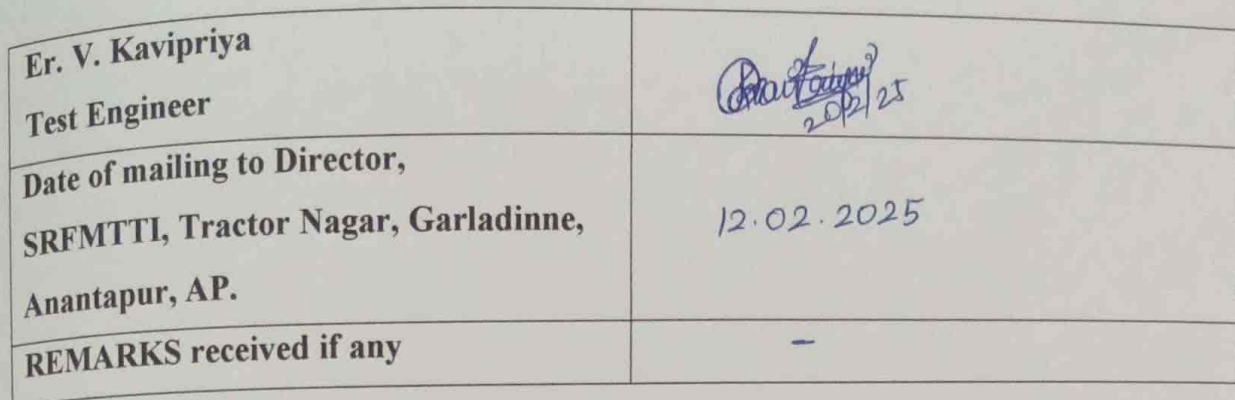 Er. V. Kavipriya
Test Engineer
20/2/25
Date of mailing to Director,
SRFMTTI, Tractor Nagar, Garladinne,
Anantapur, AP.
12.02.2025
REMARKS received if any
-